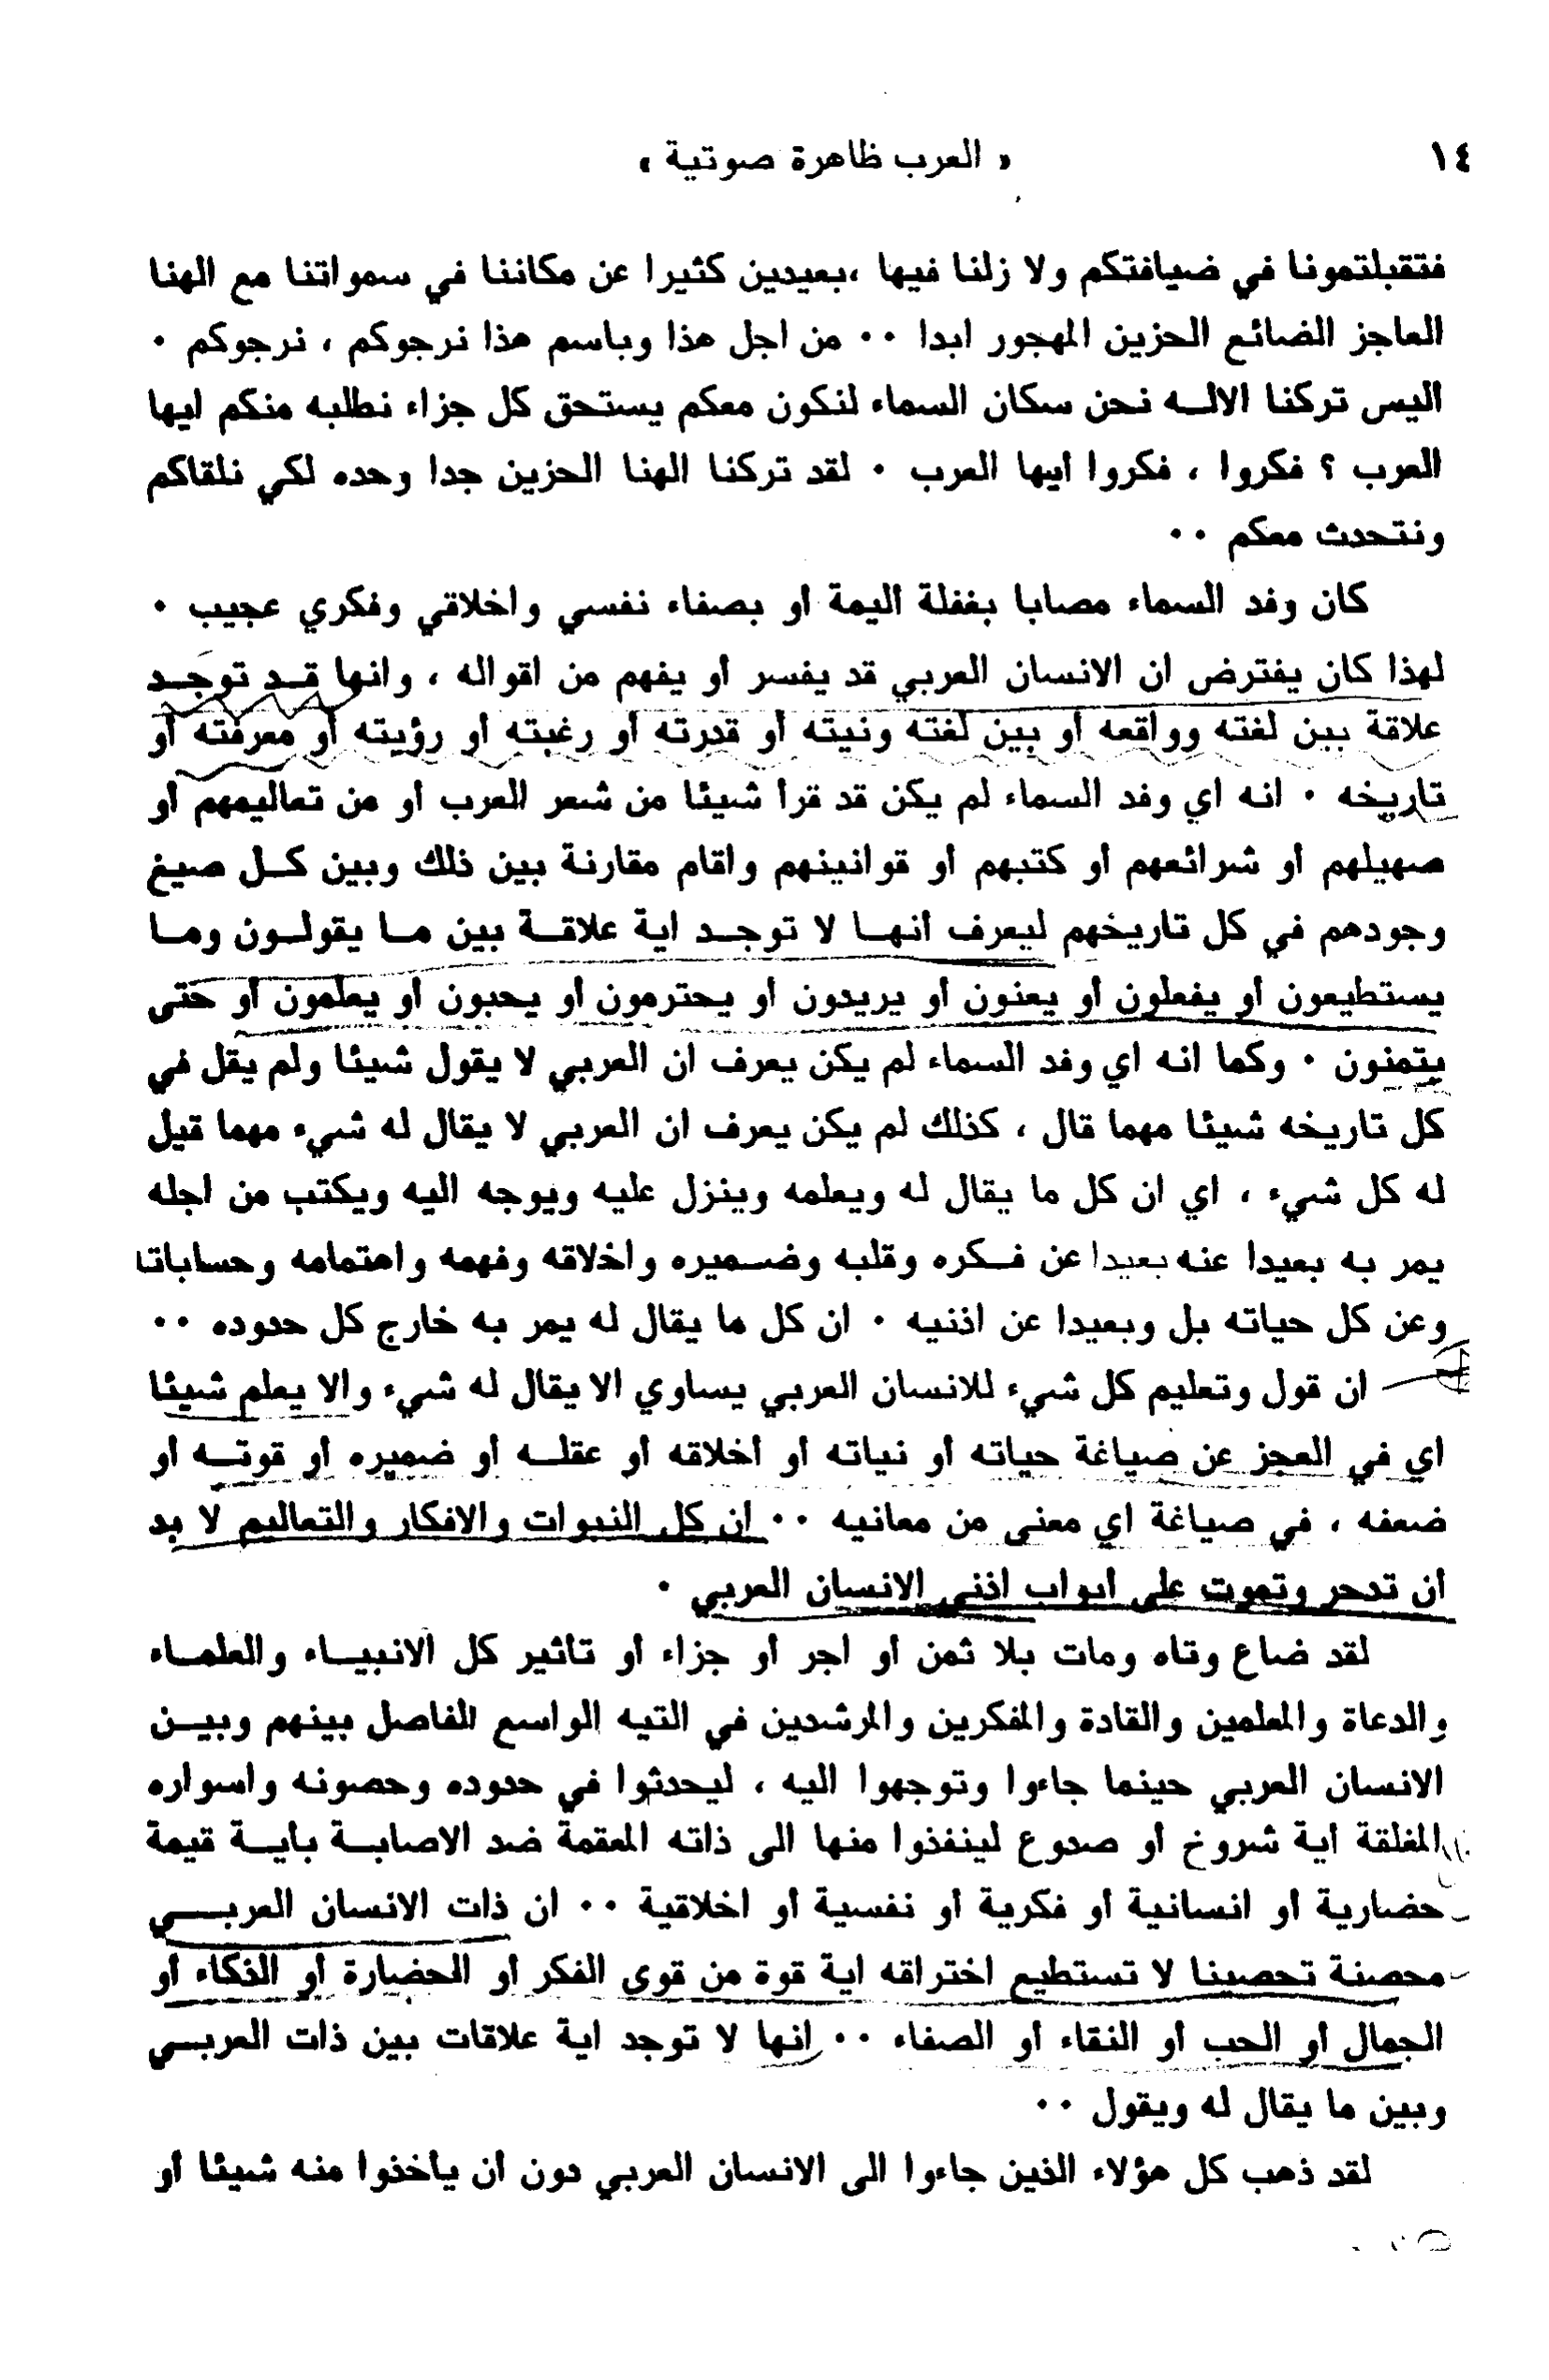 ١٤
« العرب ظاهرة صوتية »
فتقبلتمونا في ضيافتكم ولا زلنا فيها ،بعيدين كثيرا عن مكاننا في سمواتنا مع الهنا
العاجز الضائع الحزين المهجور ابدا ٠٠ من اجل هذا وباسم هذا نرجوكم ، نرجوكم ٠
اليس تركنا الالـه نحن سكان السماء لنكون معكم يستحق كل جزاء نطلبه منكم ايها
العرب ؟ فكروا ، فكروا ايها العرب ٠ لقد تركنا الهنا الحزين جدا وحده لكي نلقاكم
ونتحدث معكم ٠٠
كان وفد السماء مصابا بغفلة اليمة او بصفاء نفسي واخلاقي وفكري عجيب ٠
لهذا كان يفترض ان الانسان العربي قد يفسر او يفهم من اقواله ، وانها قـد توجـد
علاقة بين لغته وواقعه او بين لغته ونيته او قدرته او رغبته او رؤيته او معرفته او
تاريخه ٠ انه اي وفد السماء لم يكن قد قرا شيئا من شعر العرب او من تعاليمهم او
صهيلهم او شرائعهم او كتبهم او قوانينهم واقام مقارنة بين ذلك وبين كـل صيغ
وجودهم في كل تاريخهم ليعرف انهـا لا توجـد اية علاقـة بين مـا يقولـون ومـا
يستطيعون او يفعلون او يعنون او يريدون او يحترمون او يحبون او يعلمون او حتى
يتمنون ٠ وكما انه اي وفد السماء لم يكن يعرف ان العربي لا يقول شيئا ولم يقل في
كل تاريخه شيئا مهما قال ، كذلك لم يكن يعرف ان العربي لا يقال له شيء مهما قيل
له كل شيء ، اي ان كل ما يقال له ويعلمه وينزل عليه ويوجه اليه ويكتب من اجله
يمر به بعيدا عنه بعيدا عن فـكره وقلبه وضـميره واخلاقه وفهمه واهتمامه وحساباتا
وعن كل حياته بل وبعيدا عن اذنيه ٠ ان كل ما يقال له يمر به خارج كل حدوده ٠٠
ان قول وتعليم كل شيء للانسان العربي يساوي الا يقال له شيء والا يعلم شيئا
اي في العجز عن صياغة حياته او نياته او اخلاقه او عقلـه او ضميره او قوتـه او
ضعفه ، في صياغة اي معنى من معانيه ٠٠ ان كل النبوات والافكار والتعاليم لا بد
ان تدحر وتموت على ابواب اذني الانسان العربي ٠
لقد ضاع وتاه ومات بلا ثمن او اجر او جزاء او تاثير كل الانبيـاء والعلمـاء
والدعاة والمعلمين والقادة والمفكرين والمرشدين في التيه الواسع الفاصل بينهم وبيـن
الانسان العربي حينما جاءوا وتوجهوا اليه ، ليحدثوا في حدوده وحصونه واسواره
المغلقة اية شروخ او صدوع لينفذوا منها الى ذاته المعقمة ضد الاصابـة بايـة قيمة
حضارية او انسانية او فكرية او نفسية او اخلاقية ٠٠ ان ذات الانسان العربـــي
محصنة تحصينا لا تستطيع اختراقه اية قوة من قوى الفكر او الحضارة او الذكاء او
الجمال او الحب او النقاء او الصفاء ٠٠ انها لا توجد اية علاقات بين ذات العربـي
وبين ما يقال له ويقول ٠٠
لقد ذهب كل هؤلاء الذين جاءوا الى الانسان العربي دون ان ياخذوا منه شيئا او